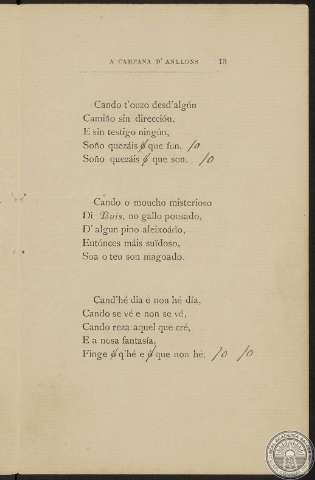 A CAMPANA D' ANLLONS 13
Cando t'ouzo desd'algún
Camiño sin dirección,
E sin testigo ningún,
Soño quezáis ó que fun. /o
Soño quezáis ó que son. /o
Cando o moucho misterioso
Di Buis, no gallo pousado,
D' algun pino afeixoádo,
Entónces máis suïdoso,
Soa o teu son magoado.
Cand'hé dia e non hé día,
Cando se vé e non se vé,
Cando reza aquel que cré,
E a nosa fantasía,
Finge ó q'hé e ó que non hé; /o /o